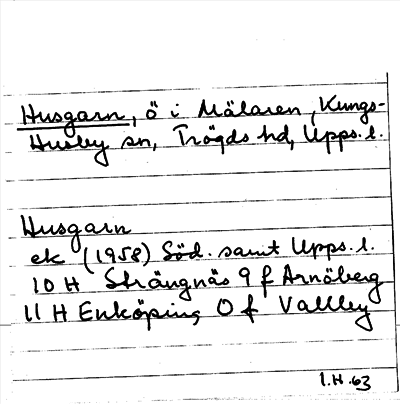 Husgarn, ö i Mälaren, Kungs-
Husby sn, Trögds hd, Upps. l.
Husgarn
ek (1958) Söd. samt Upps. l.
10 H Strängnäs 9 f Arnöberg
11 H Enköping 0 f Vallby
I.H. 63